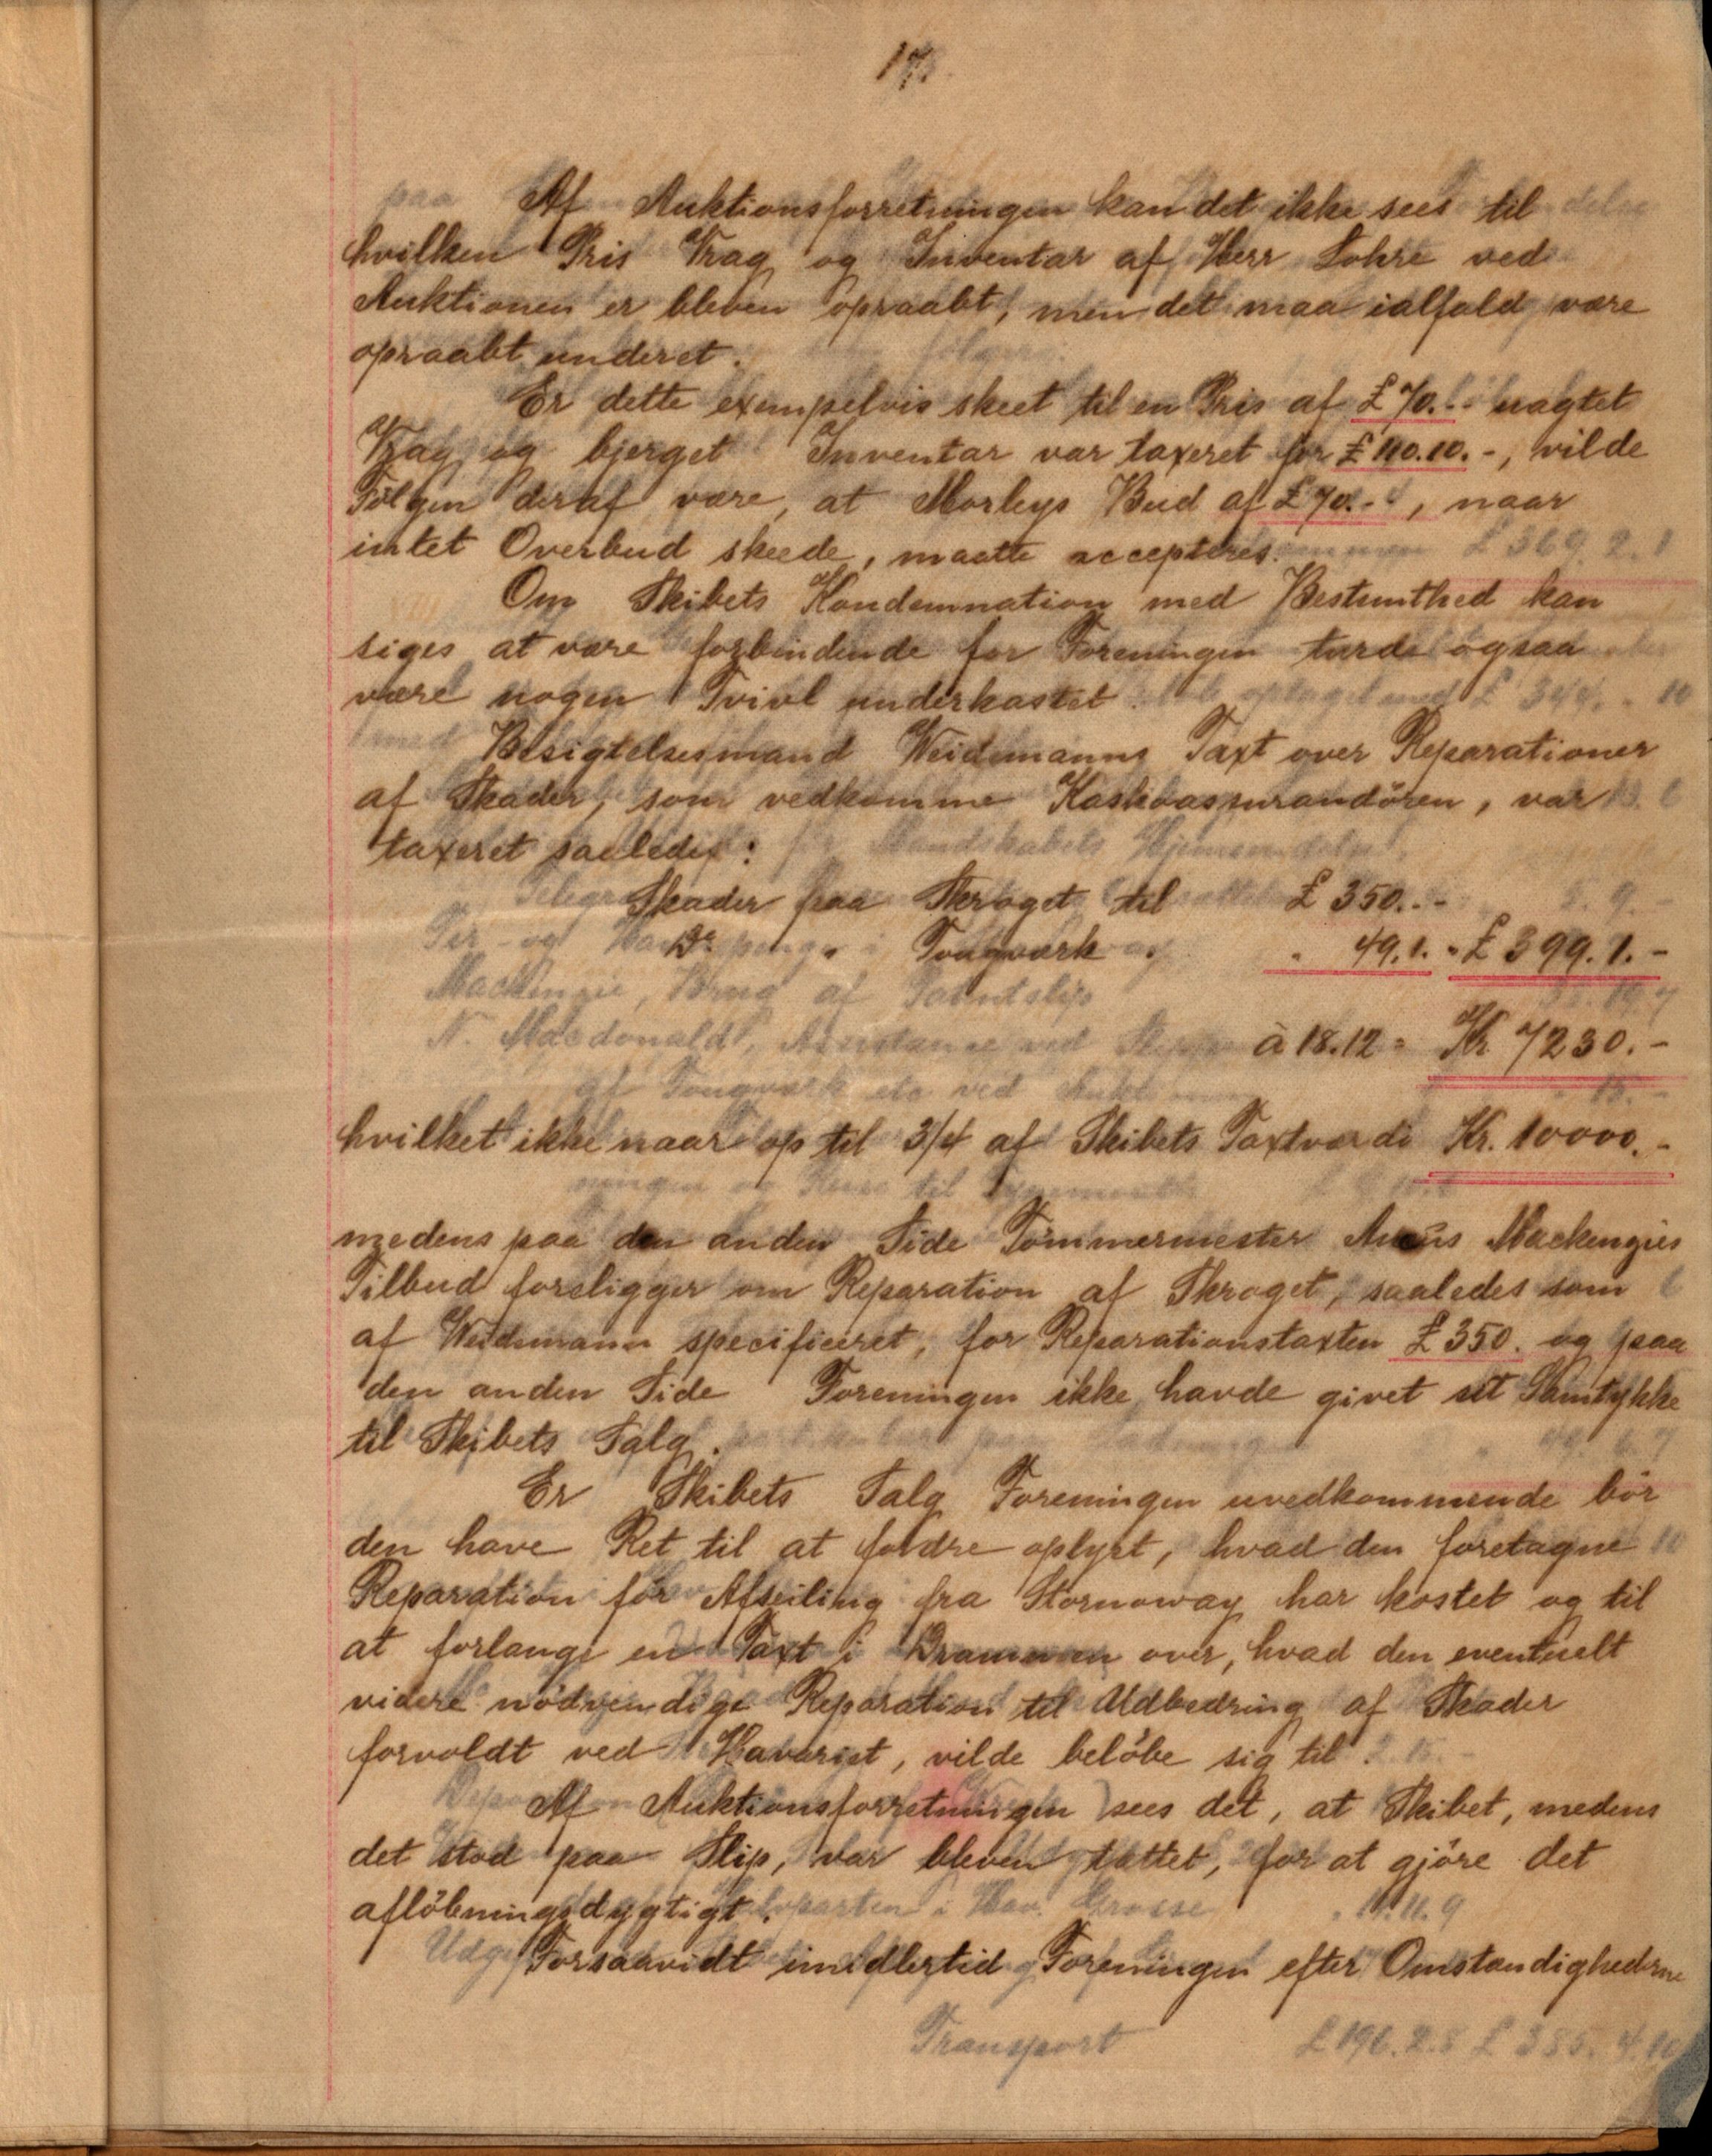 17.
Af Auktionsforretningen kan det ikke sees til
hvilken Pris Vrag og Inventar af Herr Lohre ved
Auktionen er bleven opraabt, men det maa ialfald være
opraabt underet.
Er dette exempelvis skeet til en Pris af £ 70.-- uagtet
Vrag og bjerget Inventar var taxeret for £ 110.10.-, vilde
Følgen deraf være, at Morleys Bud af £ 70.-, naar
intet Overbud skeede, maatte accepteres.
Om Skibets Kondemnation med Bestemthed kan
siges at være forbindende for Foreningen turde ogsaa
være nogen Tvivl underkastet.
Besigtelsesmand Weidemanns Taxt over Reparationer
af Skader, som vedkomme Kaskoassurandören, var
taxeret saaledes:
Skader paa Skroget til £ 350.--
Do " Tougværk " " 49.1.- £ 399.1.-
à 18.12 = Kr. 7230.-
hvilket ikke naar op til 3/4 af Skibets Taxtværdi Kr. 10000.-
medens paa den anden Side Tömmermester Mackenzies
Tilbud foreligger om Reparation af Skroget, saaledes som
af Weidemann specificeret, for Reparationstaxten £ 350. og paa
den anden Side Foreningen ikke havde givet sit Samtykke
til Skibets Salg.
Er Skibets Salg Foreningen uvedkommende bör
den have Ret til at fordre oplyst, hvad den foretagne
Reparation för Afseiling fra Stornoway har kostet og til
at forlange en Taxt i Drammen over, hvad den eventuelt
videre nödvendige Reparation til Udbedring af Skader
forvoldt ved Havariet, vilde belöbe sig til.
Af Auktionsforretningen sees det, at Skibet, medens
det stod paa Slip, var bleven tættet, for at gjöre det
aflöbningsdygtigt.
Forsaavidt imidlertid Foreningen efter Omstændighederne